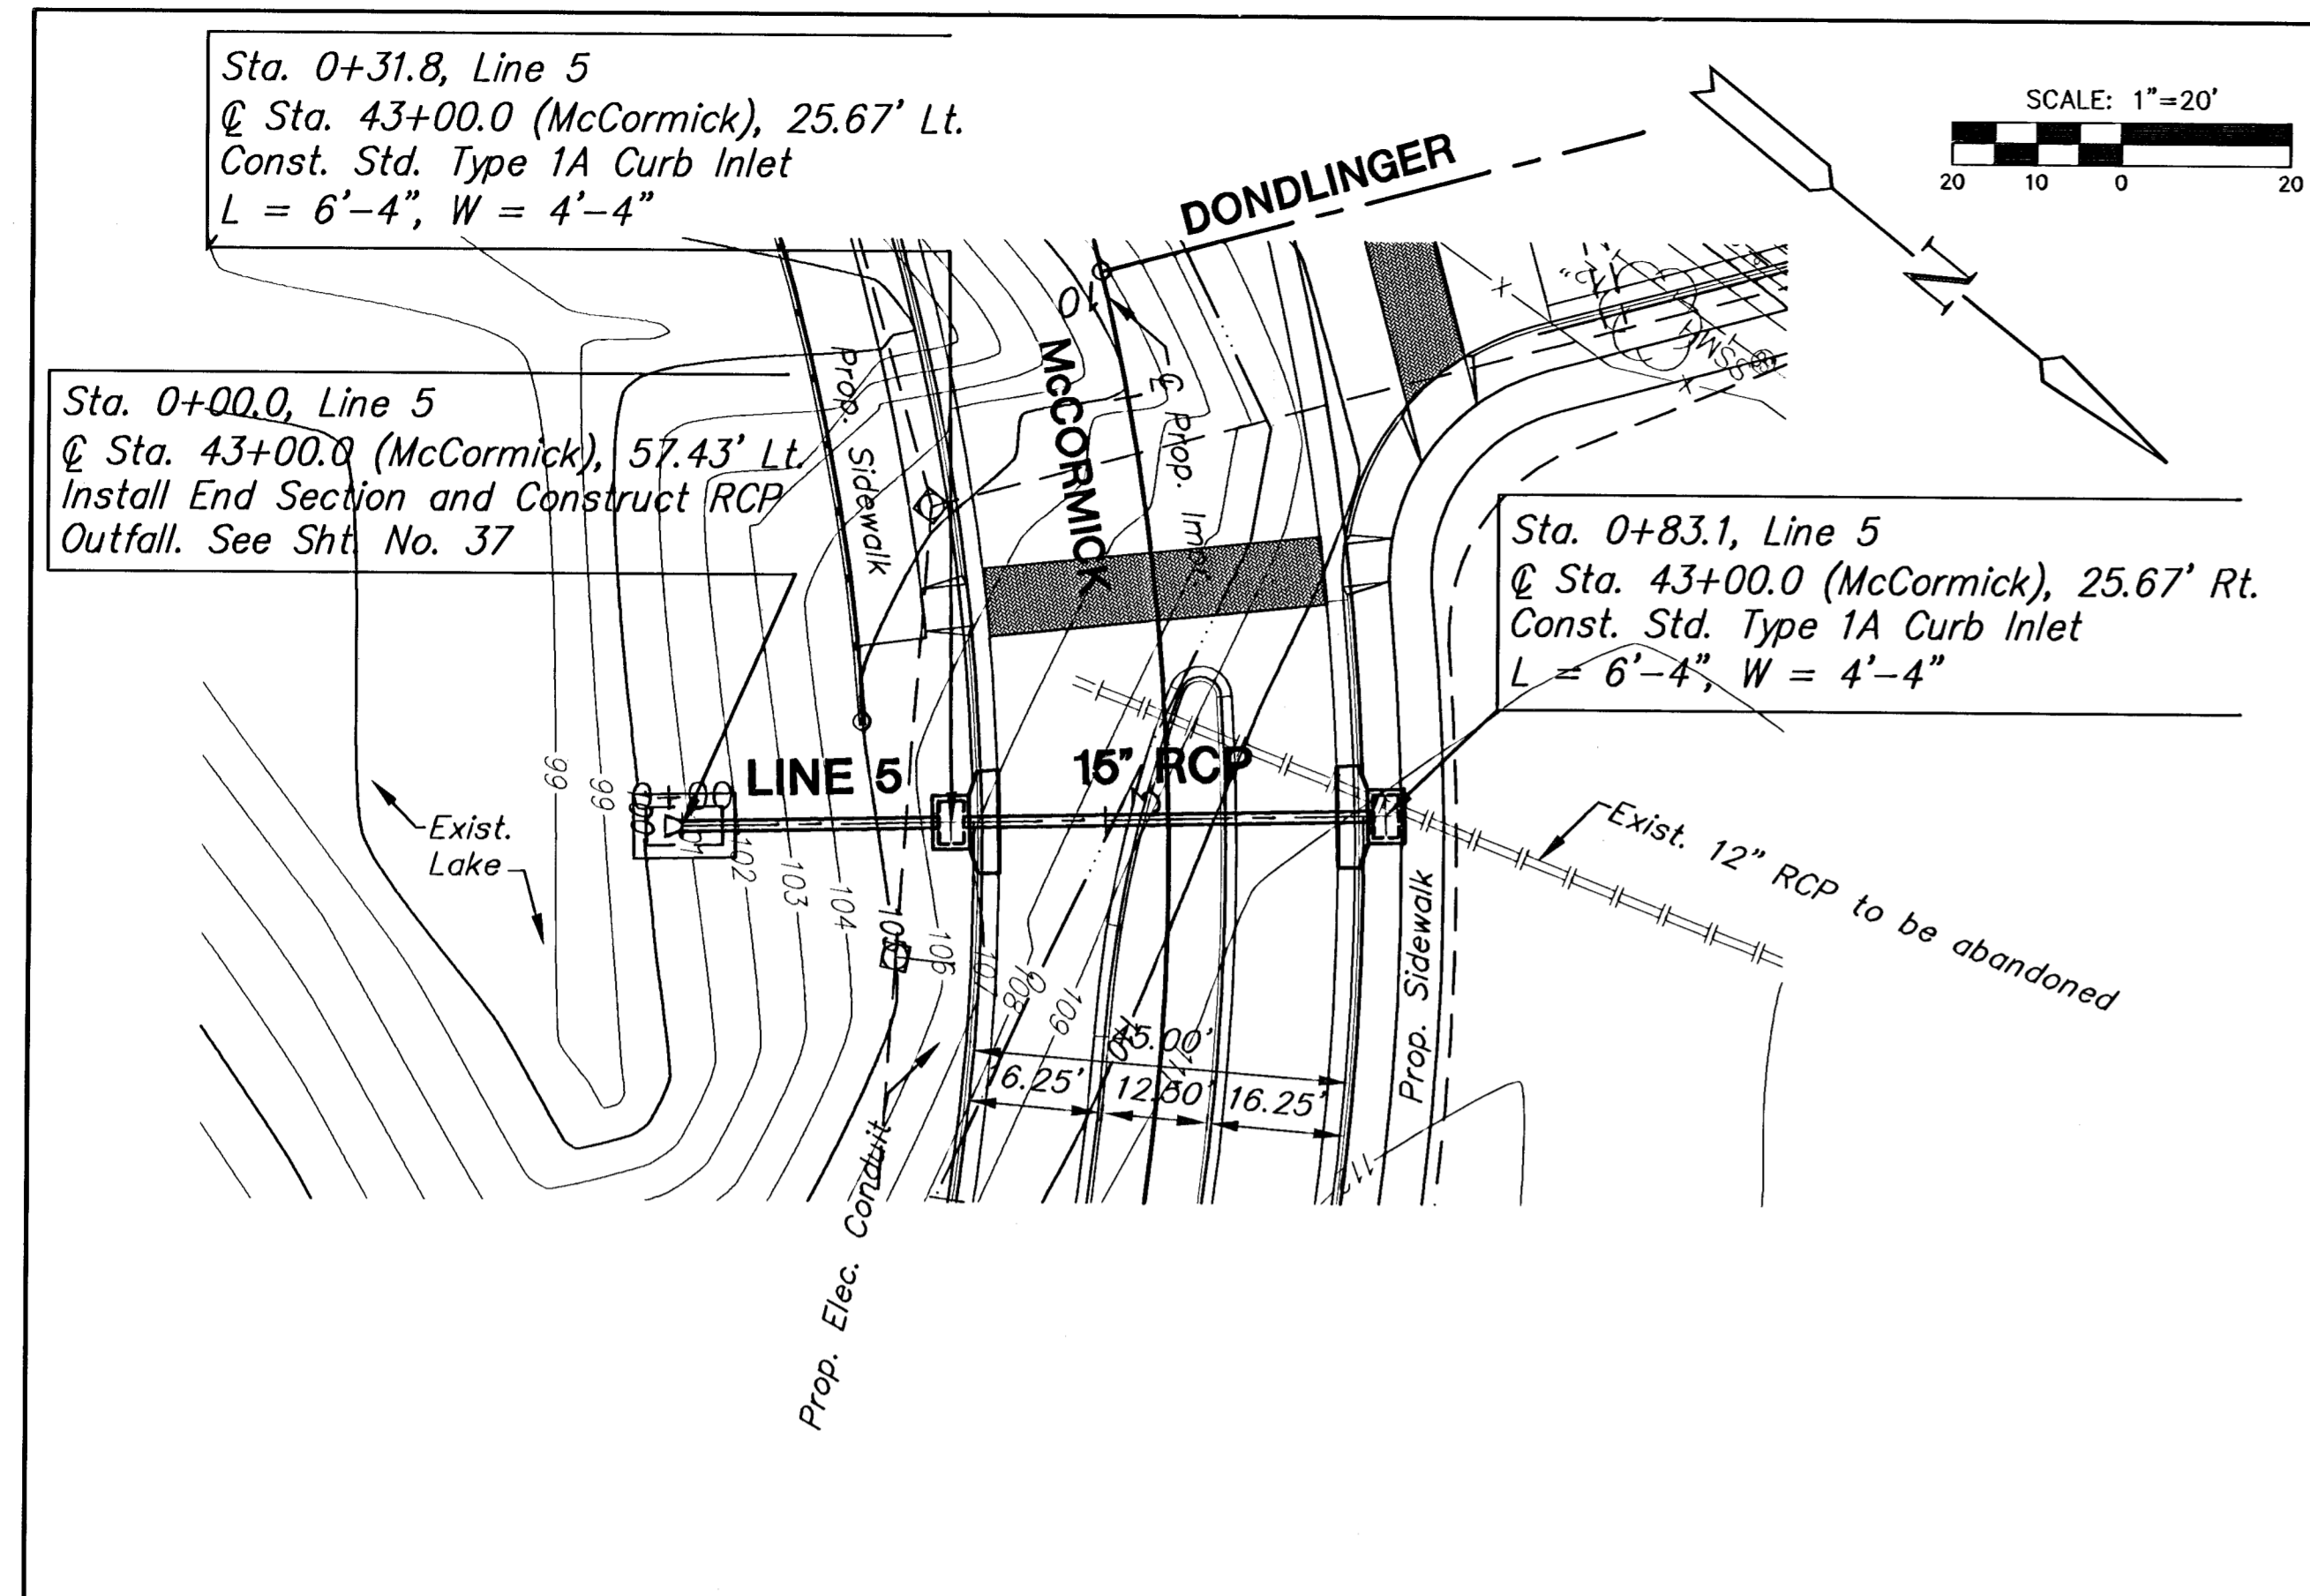 Sta. 0+31.8, Line 5
℄ Sta. 43+00.0 (McCormick), 25.67' Lt.
Const. Std. Type 1A Curb Inlet
L = 6'-4", W = 4'-4"
SCALE: 1"=20'
20 10 0 20
N
DONDLINGER
Sta. 0+00.0, Line 5
℄ Sta. 43+00.0 (McCormick), 57.43' Lt.
Install End Section and Construct RCP
Outfall. See Sht. No. 37
Prop. Sidewalk
McCORMICK
℄ Prop. Impr.
SSMH
Sta. 0+83.1, Line 5
℄ Sta. 43+00.0 (McCormick), 25.67' Rt.
Const. Std. Type 1A Curb Inlet
L = 6'-4", W = 4'-4"
LINE 5
15" RCP
99
99
Exist.
Lake
102
103
104
106
107
108
109
Exist. 12" RCP to be abandoned
Prop. Sidewalk
45.00'
16.25'
12.50'
16.25'
Prop. Elec. Conduit